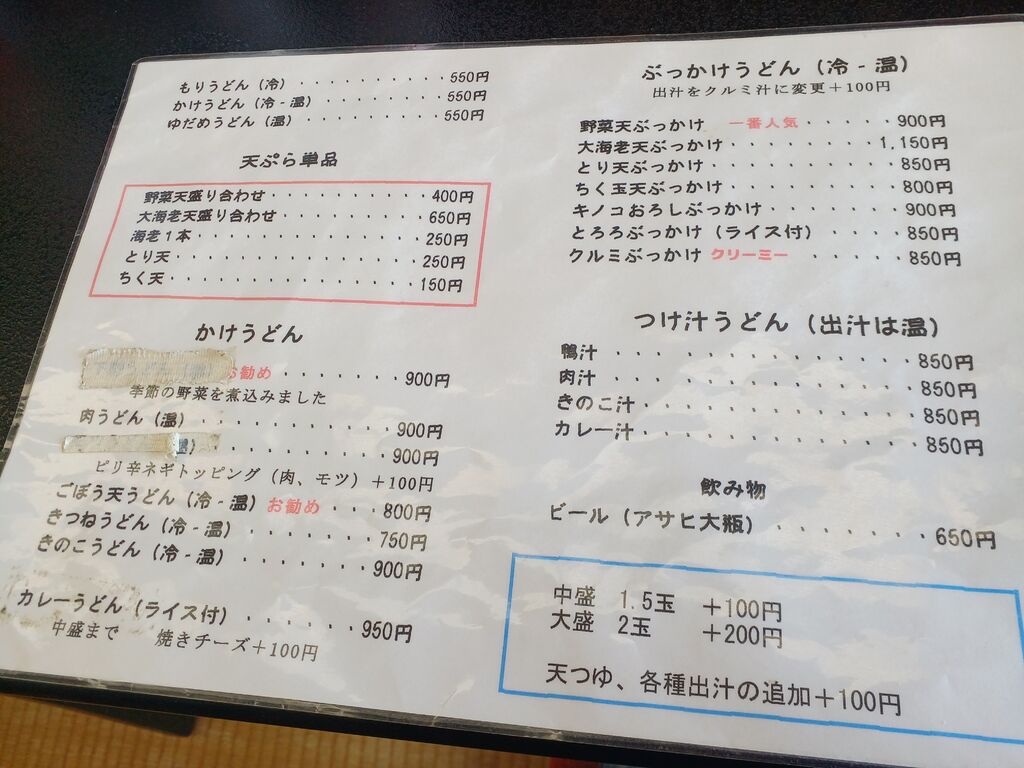 もりうどん（冷）・・・・・・・・・・550円
かけうどん（冷-温）・・・・・・・・550円
ゆだめうどん（温）・・・・・・・・・550円
天ぷら単品
野菜天盛り合わせ・・・・・・・・・・400円
大海老天盛り合わせ・・・・・・・・・650円
海老１本・・・・・・・・・・・・・・250円
とり天・・・・・・・・・・・・・・・250円
ちく天・・・・・・・・・・・・・・・150円
かけうどん
お勧め・・・・・・・・900円
季節の野菜を煮込みました
肉うどん（温）・・・・・・・・・・900円
・・・・・・・・900円
ピリ辛ネギトッピング（肉、モツ）＋100円
ごぼう天うどん（冷-温）お勧め・・・800円
きつねうどん（冷-温）・・・・・・・750円
きのこうどん（冷-温）・・・・・・・900円
カレーうどん（ライス付）・・・・・・950円
中盛まで　焼きチーズ＋100円
ぶっかけうどん（冷-温）
出汁をクルミ汁に変更＋100円
野菜天ぶっかけ　一番人気・・・・・900円
大海老天ぶっかけ・・・・・・・・1,150円
とり天ぶっかけ・・・・・・・・・・850円
ちく玉天ぶっかけ・・・・・・・・・800円
キノコおろしぶっかけ・・・・・・・900円
とろろぶっかけ（ライス付）・・・・850円
クルミぶっかけ クリーミー・・・・・850円
つけ汁うどん（出汁は温）
鴨汁・・・・・・・・・・・・・・・850円
肉汁・・・・・・・・・・・・・・・850円
きのこ汁・・・・・・・・・・・・・850円
カレー汁・・・・・・・・・・・・・850円
飲み物
ビール（アサヒ大瓶）・・・・・・・650円
中盛　1.5玉　＋100円
大盛　2玉　＋200円
天つゆ、各種出汁の追加＋100円